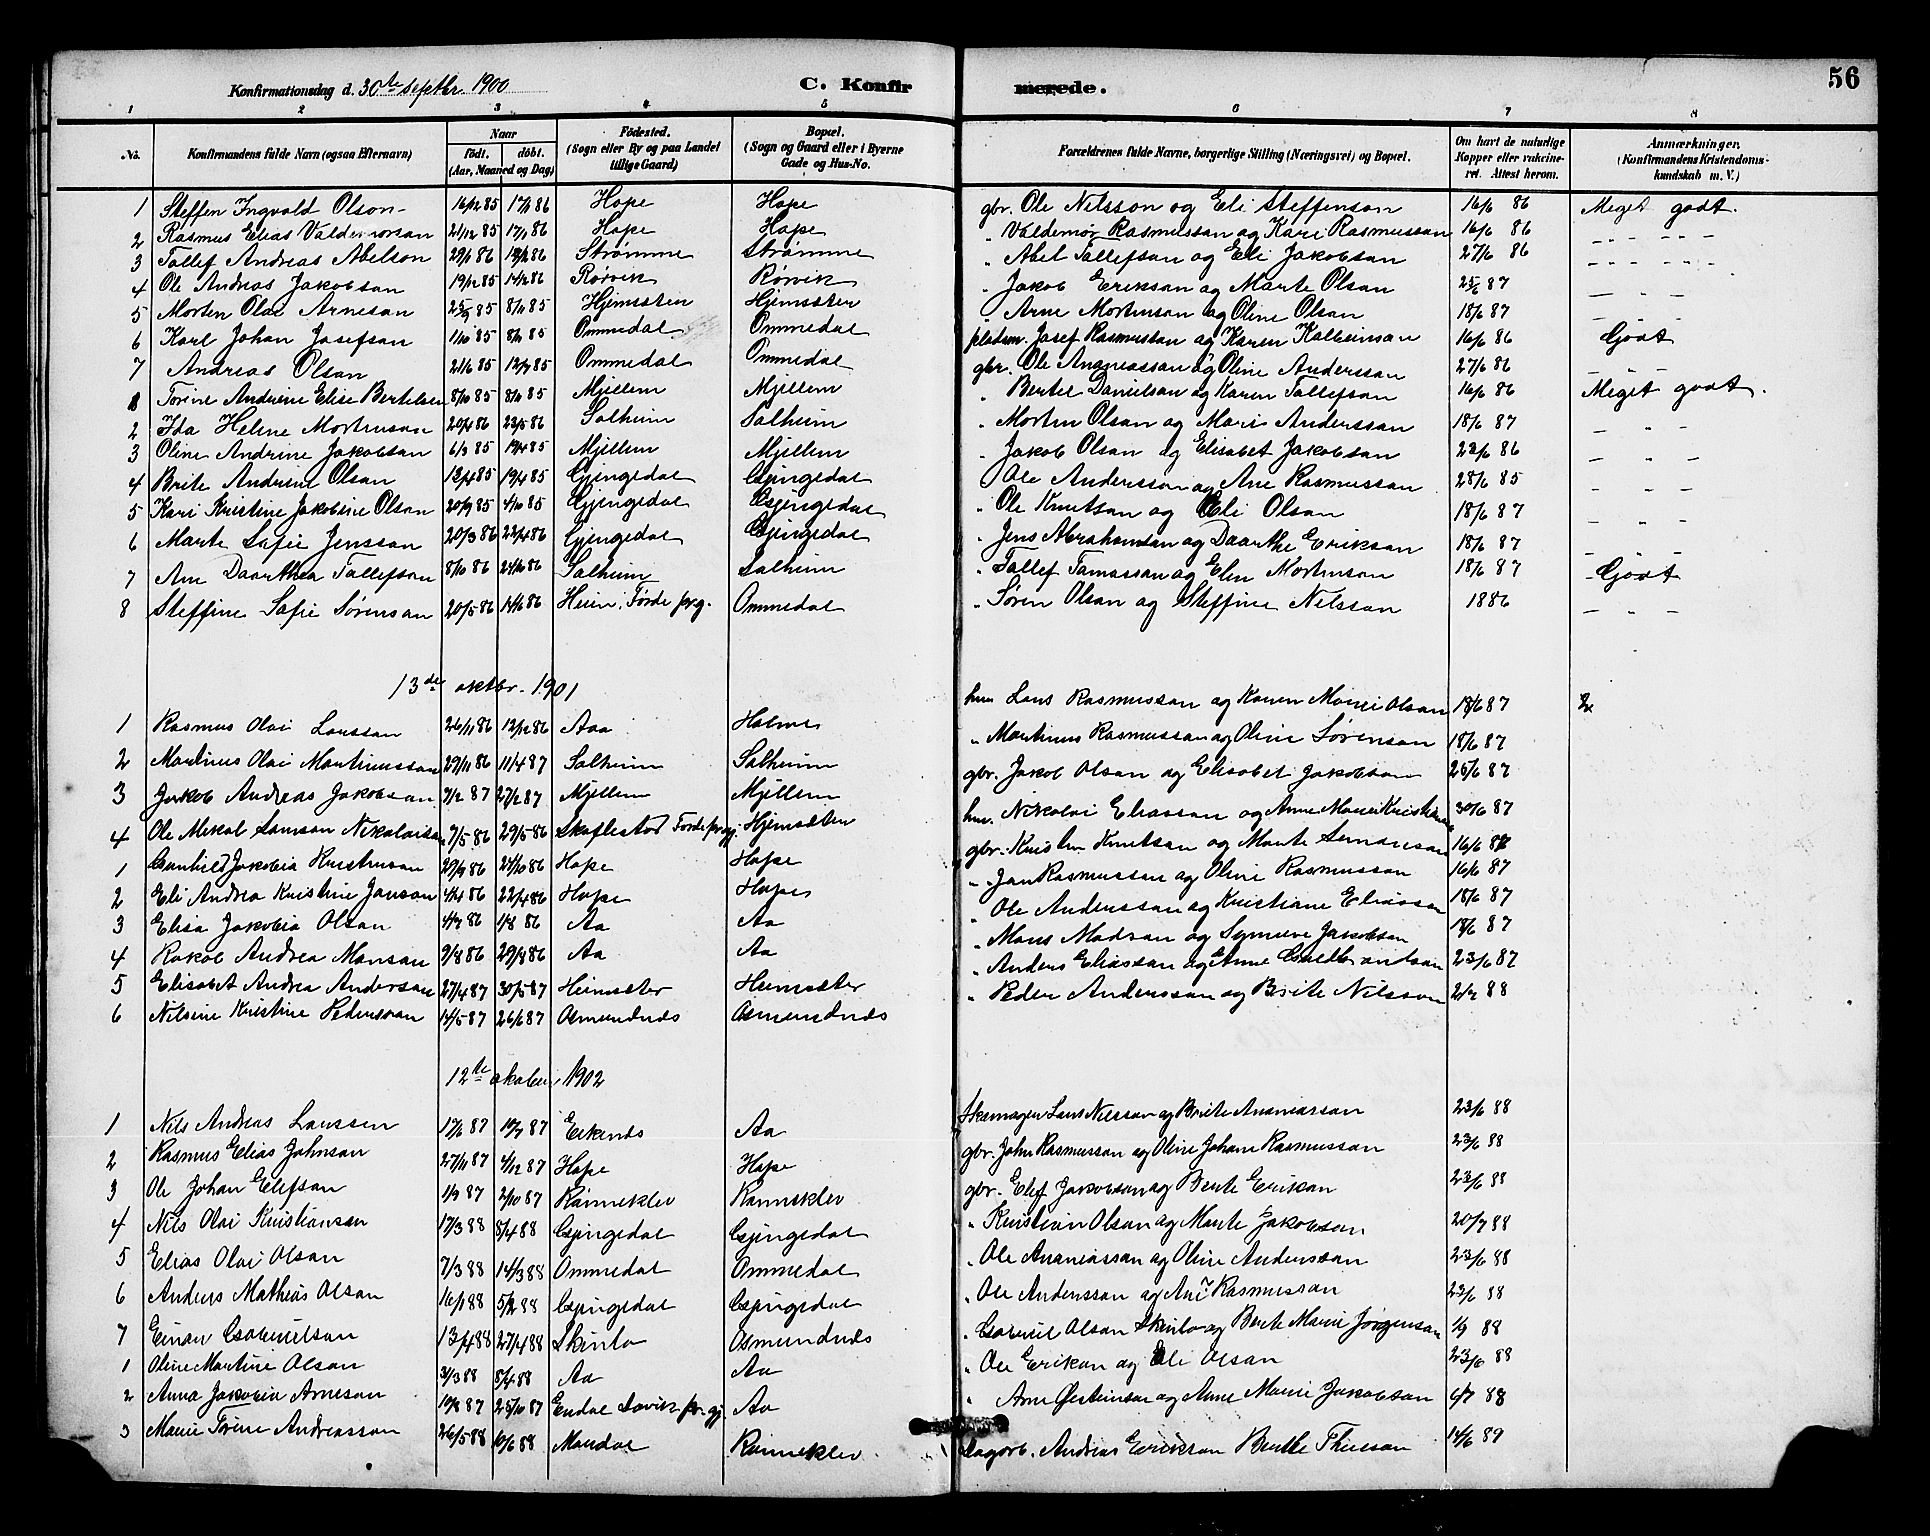 56
Konfirmationsdag d. 30te septbr. 1900 C. Konfirmerede.
1 2 3 4 5 6 7 8
No. Konfirmandens fulde Navn (ogsaa Efternavn) Naar födt. döbt. (Aar, Maaned og Dag) Födested. (Sogn eller By og paa Landet tillige Gaard) Bopæl. (Sogn og Gaard eller i Byerne Gade og Hus-No. Forældrenes fulde Navne, borgerlige Stilling (Næringsvei) og Bopæl. Om havt de naturlige Kopper eller vaksineret. Attest herom. Anmærkninger. (Konfirmandens Kristendomskundskab m. V.)
1 Steffen Ingvald Olson 16/12 85 17/1 86 Hope Hope gbr. Ole Nilsson og Eli Steffenson 16/6 86 Meget godt.
2 Rasmus Elias Valdemorson 21/12 85 17/1 86 Hope Hope " Valdemor Rasmusson og Kari Rasmusson 16/6 86 " "
3 Tollef Andreas Abelson 29/1 86 86 Strømme Strømme " Abel Tollefson og Eli Jakobson 27/6 86 " "
4 Ole Andreas Jakobson 19/12 85 14/2 86 Rørvik Rørvik " Jakob Erikson og Marte Olson 87 " "
5 Morten Olai Arneson 85 8/11 85 Hjemseter Hjemseter " Arne Mortenson og Oline Olson 18/6 87 " "
6 Karl Johan Josefson 1/10 85 85 Ommedal Ommedal pladsm. Josef Rasmusson og Karen Kolbeinson 16/6 86 Godt
7 Andreas Olson 21/6 85 12/7 85 Ommedal Ommedal gbr. Ole Ananiasson og Oline Andersson 27/6 86 "
1 Torine Andrine Elise Bertelsen 8/10 85 8/11 85 Mjellem Mjellem " Bertel Danielson og Karen Tollefson 16/6 86 Meget godt.
2 Ida Helene Mortenson 20/4 86 23/5 86 Solheim Solheim " Morten Olson og Mari Andersson 18/6 87 " "
3 Oline Andrine Jakobson 6/3 85 19/4 85 Mjellem Mjellem " Jakob Olson og Elisabet Jakobson 23/6 86 " "
4 Brite Andrine Olson 12/4 85 19/4 85 Gjengedal Gjengedal " Ole Andersson og Ane Rasmusson 28/6 85 " "
5 Kari Kristine Jakobine Olson 20/9 85 4/10 85 Gjengedal Gjengedal " Ole Knutson og Eli Olson 18/6 87 " "
6 Marte Sofie Jensson 20/3 86 22/4 86 Gjengedal Gjengedal " Jens Abrahamson og Daarthe Erikson 18/6 87 " "
7 Ane Daarthea Tollefson 8/10 86 24/10 86 Solheim Solheim " Tollef Tomasson og Elen Mortenson 18/6 87 Godt
8 Steffine Sofie Sørenson 20/5 86 14/6 86 Heim, Førde prg. Ommedal " Søren Olson og Steffine Nilsson 1886 " "
13de oktbr. 1901
1 Rasmus Olai Larsson 26/11 86 12/12 86 Aaa Holme hm Lars Rasmusson og Karen Marie Olson 18/6 87
2 Martinus Olai Martinusson 29/11 86 11/4 87 Solheim Solheim " Martinus Rasmusson og Oline Sørenson 18/6 87
3 Jakob Andreas Jakobson 9/2 87 27/2 87 Mjellem Mjellem gbr. Jakob Olson og Elisabet Jakobson 25/6 87
4 Ole Mikal Samson Nikolaison 7/5 86 29/5 86 Skoflestad Førde prgj. Hjemseten hm. Nikolai Eliasson og Anne Marie Kristianson 30/6 87
1 Gunhild Jakobia Kristenson 29/9 86 24/10 86 Hope Hope gbr. Kristen Knutson og Marte 16/6 87
2 Eli Andrea Kristine Janson 4/4 86 22/4 86 Hope Hope " Jan Rasmusson og Oline Rasmusson 16/6 87
3 Elisa Jakobia Olson 4/7 86 1/8 86 Aa Aa " Ole Andersson og Kristiane Eliasson 18/6 87
4 Rakob Andrea Monson 9/8 86 29/8 86 Aa Aa " Mons Madson og Synneve Jakobson 18/6 87
5 Elisabet Andrea Anderson 27/4 87 30/5 87 Heimseter Heimseter " Anders Eliasson og Anne Gulbrandson 23/6 87
6 Nilsine Kristine Pedersson 14/5 87 26/6 87 Osmundnes Osmundnes " Peder Andersson og Brite Nilsson 2/7 88
12te oktober 1902
1 Nils Andreas Larssen 17/6 87 10/7 87 Eikenes Aa Skomager Lars Nilsson og Brite Ananiasson 23/6 88
2 Rasmus Elias Johnson 27/11 87 4/12 87 Hope Hope gbr. John Rasmusson og Oline Johane Rasmusson 23/6 88
3 Ole Johan Elefson 1/9 87 2/10 87 Rønneklev Rønneklev gbr. Elef Jakobson og Berte Erikson 23/6 88
4 Nils Olai Kristianson 17/3 88 8/4 88 Gjengedal Gjengedal " Kristian Olson og Marte Jakobson 20/7 88
5 Elias Olai Olson 7/3 88 14/3 88 Ommedal Ommedal " Ole Ananiasson og Oline Andersson 23/6 88
6 Anders Mathias Olson 16/1 88 5/2 88 Gjengedal Gjengedal " Ole Andersson og Ane Rasmusson 23/6 88
7 Einar Gabrielson 13/4 88 27/4 88 Skinlo Osmundnes " Gabriel Olson Skinlo og Berte Marie Jørgenson 1/9 88
1 Oline Martine Olson 31/3 88 8/4 88 Aa Aa " Ole Erikson og Eli Olson 23/6 88
2 Anna Jakobia Arneson 19/8 87 25/10 87 Endal Davik prgj. Aa " Arne Østenson og Anne Marie Jakobson 6/7 88
3 Marie Torine Andreasson 26/5 88 10/6 88 Mandal Rønneklev Dagarb. Andreas Erikson Berthe Thueson 14/6 89